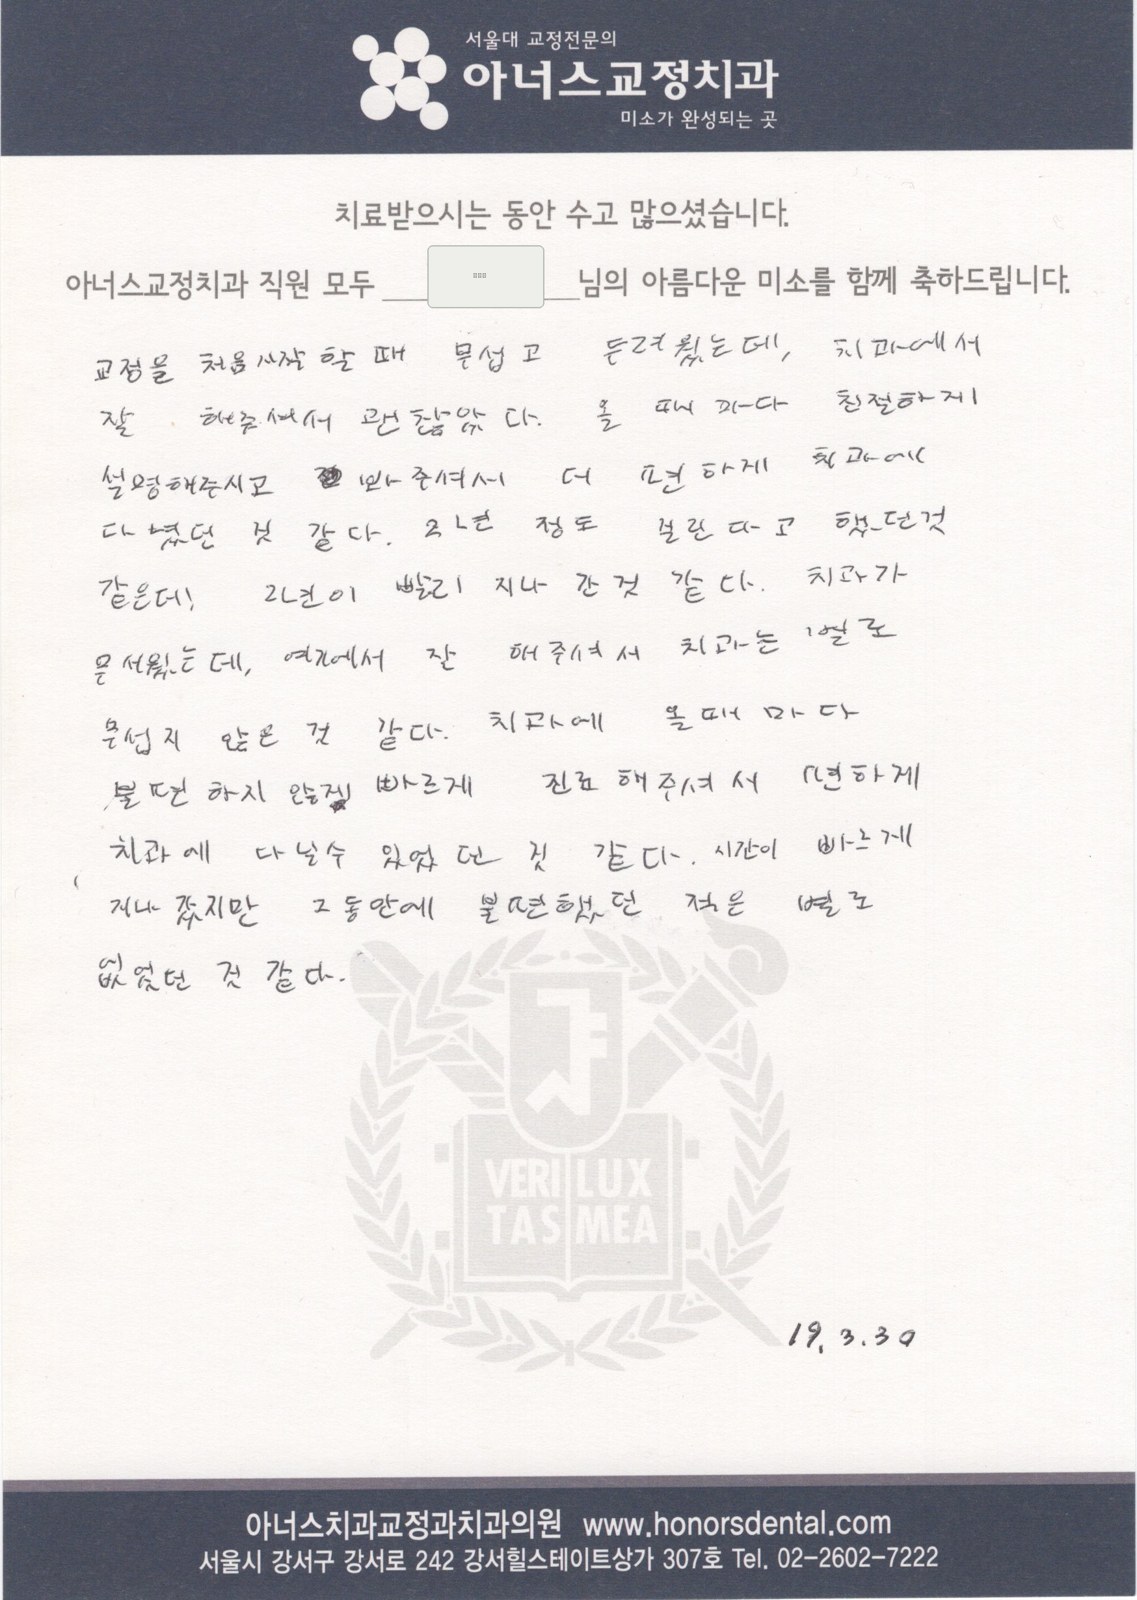 서울대 교정전문의
아너스교정치과
미소가 완성되는 곳
치료받으시는 동안 수고 많으셨습니다.
아너스교정치과 직원 모두 님의 아름다운 미소를 함께 축하드립니다.
교정을 처음시작 할 때 무섭고 두려웠는데, 치과에서
잘 해주셔서 괜찮았다. 올 때마다 친절하게
설명해주시고 봐주셔서 더 편하게 치과에
다녔던 것 같다. 2년 정도 걸린다고 했던것
같은데! 2년이 빨리 지나간것 같다. 치과가
무서웠는데, 여기에서 잘 해주셔서 치과는 별로
무섭지 않은 것 같다. 치과에 올때마다
불편하지 않게 빠르게 진료해주셔서 편하게
치과에 다닐수 있었던 것 같다. 시간이 빠르게
지나갔지만 그동안에 불편했던 적은 별로
없었던 것 같다.
VERI LUX
TAS MEA
19. 3. 30
아너스치과교정과치과의원 www.honorsdental.com
서울시 강서구 강서로 242 강서힐스테이트상가 307호 Tel. 02-2602-7222